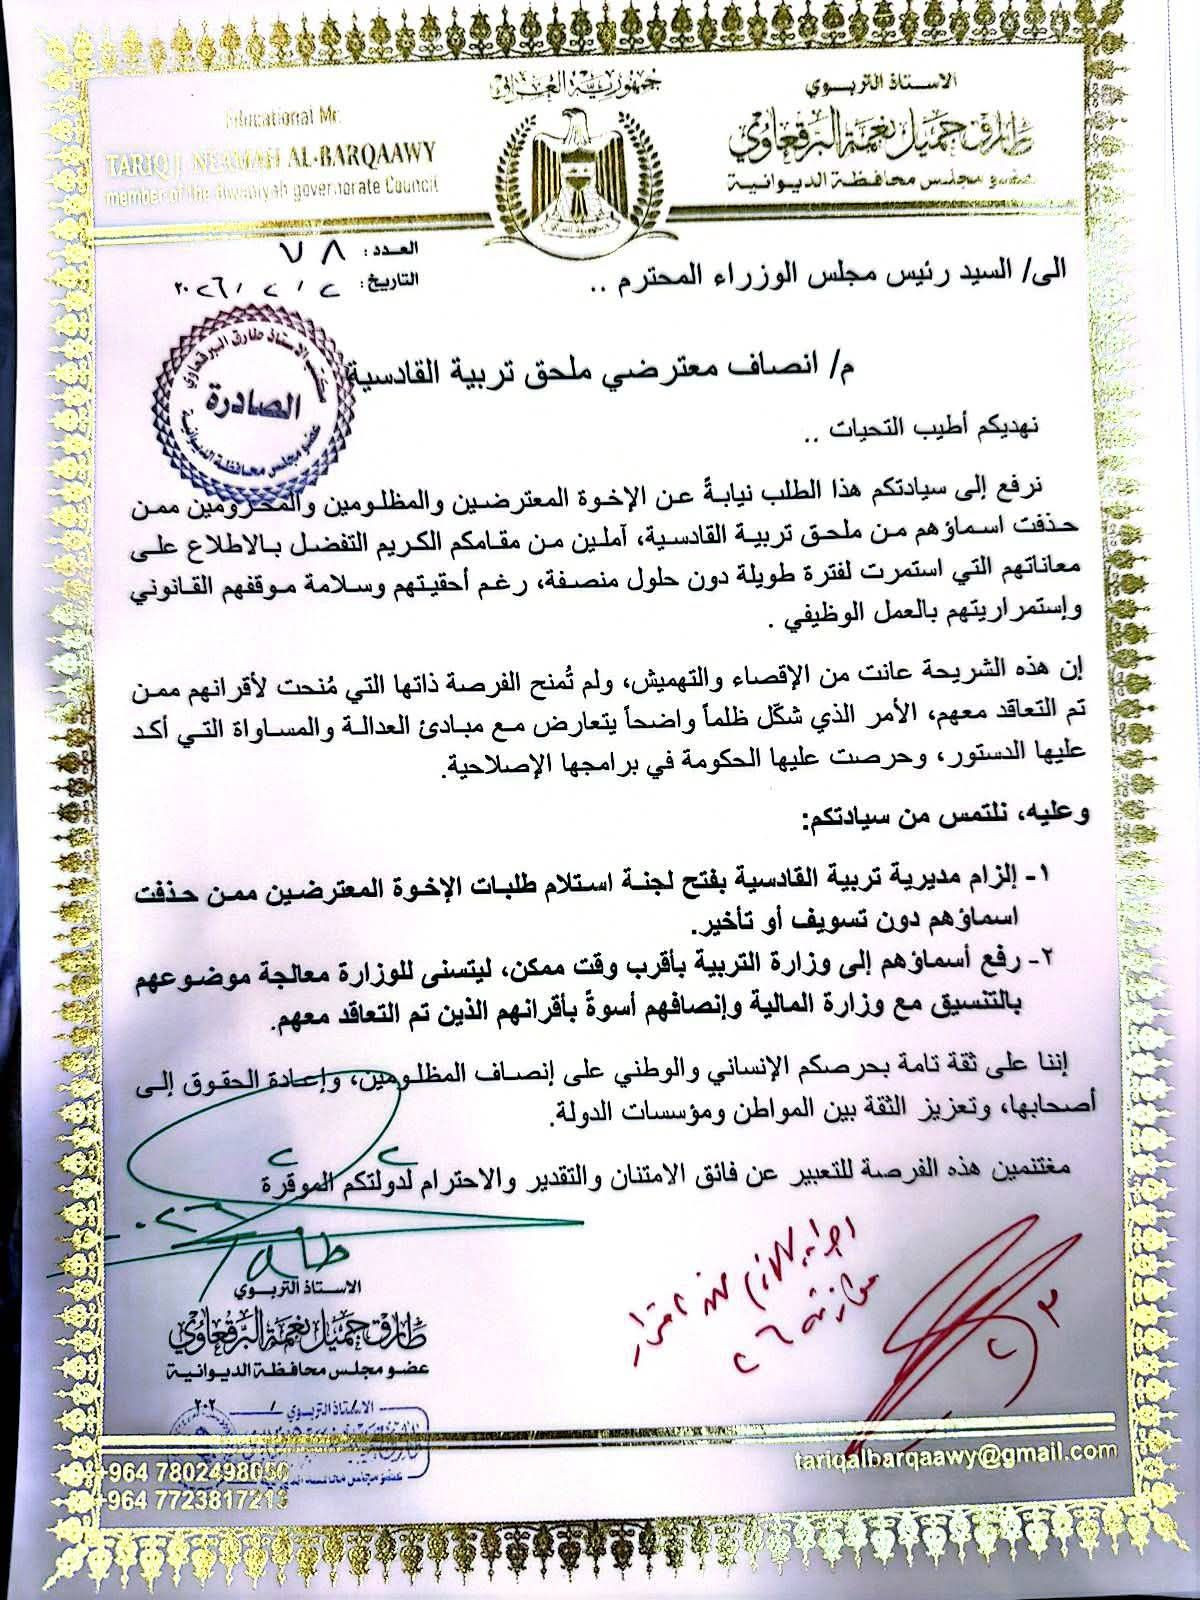 جمهورية العراق
الاستاذ التربوي
طارق جميل نعمة البرقعاوي
عضو مجلس محافظة الديوانية
Educational Mr.
TARIQ J. NEAMAH AL-BARQAAWY
member of the diwaniyah governorate Council
العدد: ٧٨
التاريخ: ٢ / ٢ / ٢٠٢٦
الى/ السيد رئيس مجلس الوزراء المحترم ..
م/ انصاف معترضي ملحق تربية القادسية
مكتب الاستاذ طارق البرقعاوي
الصادرة
عضو مجلس محافظة الديوانية
نهديكم أطيب التحيات ..
نرفع إلى سيادتكم هذا الطلب نيابةً عن الإخوة المعترضين والمظلومين والمحرومين ممن
حذفت اسماؤهم من ملحق تربية القادسية، آملين من مقامكم الكريم التفضل بالاطلاع على
معاناتهم التي استمرت لفترة طويلة دون حلول منصفة، رغم أحقيتهم وسلامة موقفهم القانوني
وإستمراريتهم بالعمل الوظيفي .
إن هذه الشريحة عانت من الإقصاء والتهميش، ولم تُمنح الفرصة ذاتها التي مُنحت لأقرانهم ممن
تم التعاقد معهم، الأمر الذي شكّل ظلماً واضحاً يتعارض مع مبادئ العدالة والمساواة التي أكد
عليها الدستور، وحرصت عليها الحكومة في برامجها الإصلاحية.
وعليه، نلتمس من سيادتكم:
١- إلزام مديرية تربية القادسية بفتح لجنة استلام طلبات الإخوة المعترضين ممن حذفت
اسماؤهم دون تسويف أو تأخير.
٢- رفع أسماؤهم إلى وزارة التربية بأقرب وقت ممكن، ليتسنى للوزارة معالجة موضوعهم
بالتنسيق مع وزارة المالية وإنصافهم أسوةً بأقرانهم الذين تم التعاقد معهم.
إننا على ثقة تامة بحرصكم الإنساني والوطني على إنصاف المظلومين، وإعادة الحقوق إلى
أصحابها، وتعزيز الثقة بين المواطن ومؤسسات الدولة.
مغتنمين هذه الفرصة للتعبير عن فائق الامتنان والتقدير والاحترام لدولتكم الموقرة
الاستاذ التربوي
طارق جميل نعمة البرقعاوي
عضو مجلس محافظة الديوانية
الاستاذ التربوي
عضو مجلس محافظة
+964 7802498050
+964 7723817213
tariqalbarqaawy@gmail.com